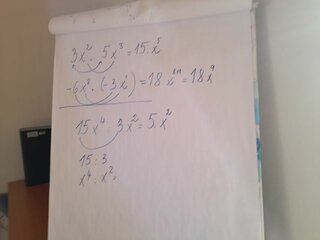 3x² · 5x³ = 15 · x⁵
-6x⁸ · (-3x¹) = 18 x⁸⁺¹ = 18x⁹
15x⁴ : 3x² = 5 · x²
15 : 3
x⁴ : x² =